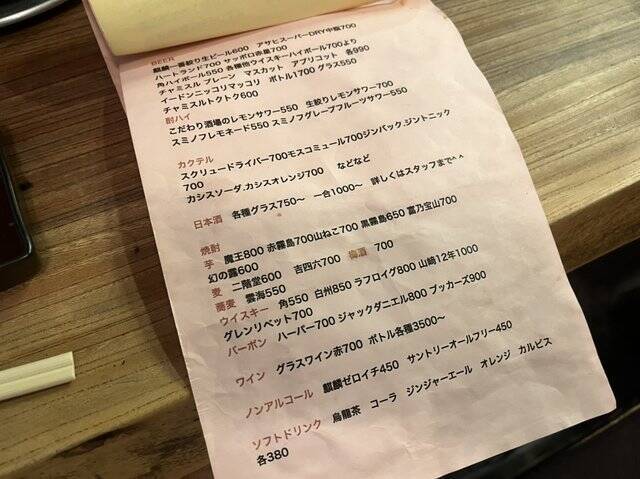 BEER
麒麟一番絞り生ビール600 アサヒスーパーDRY中瓶700
ハートランド700 サッポロ赤星700
角ハイボール550 各種他ウイスキーハイボール700より
チャミスル プレーン マスカット アプリコット 各990
イードンニッコリマッコリ ボトル1700 グラス550
チャミスルトクトク600
酎ハイ
こだわり酒場のレモンサワー550 生絞りレモンサワー700
スミノフレモネード550 スミノフグレープフルーツサワー550
カクテル
スクリュードライバー700モスコミュール700ジンバック.ジントニック
700
カシスソーダ.カシスオレンジ700 などなど
日本酒 各種グラス750〜 一合1000〜 詳しくはスタッフまで^ ^
焼酎
芋 魔王800 赤霧島700山ねこ700 黒霧島650 富乃宝山700
幻の露600
麦 二階堂600 吉四六700 梅酒 700
蕎麦 雲海550
ウイスキー 角550 白州850 ラフロイグ800 山崎12年1000
グレンリベット700
バーボン ハーパー700 ジャックダニエル800 ブッカーズ900
ワイン グラスワイン赤700 ボトル各種3500〜
ノンアルコール 麒麟ゼロイチ450 サントリーオールフリー450
ソフトドリンク 烏龍茶 コーラ ジンジャーエール オレンジ カルピス
各380